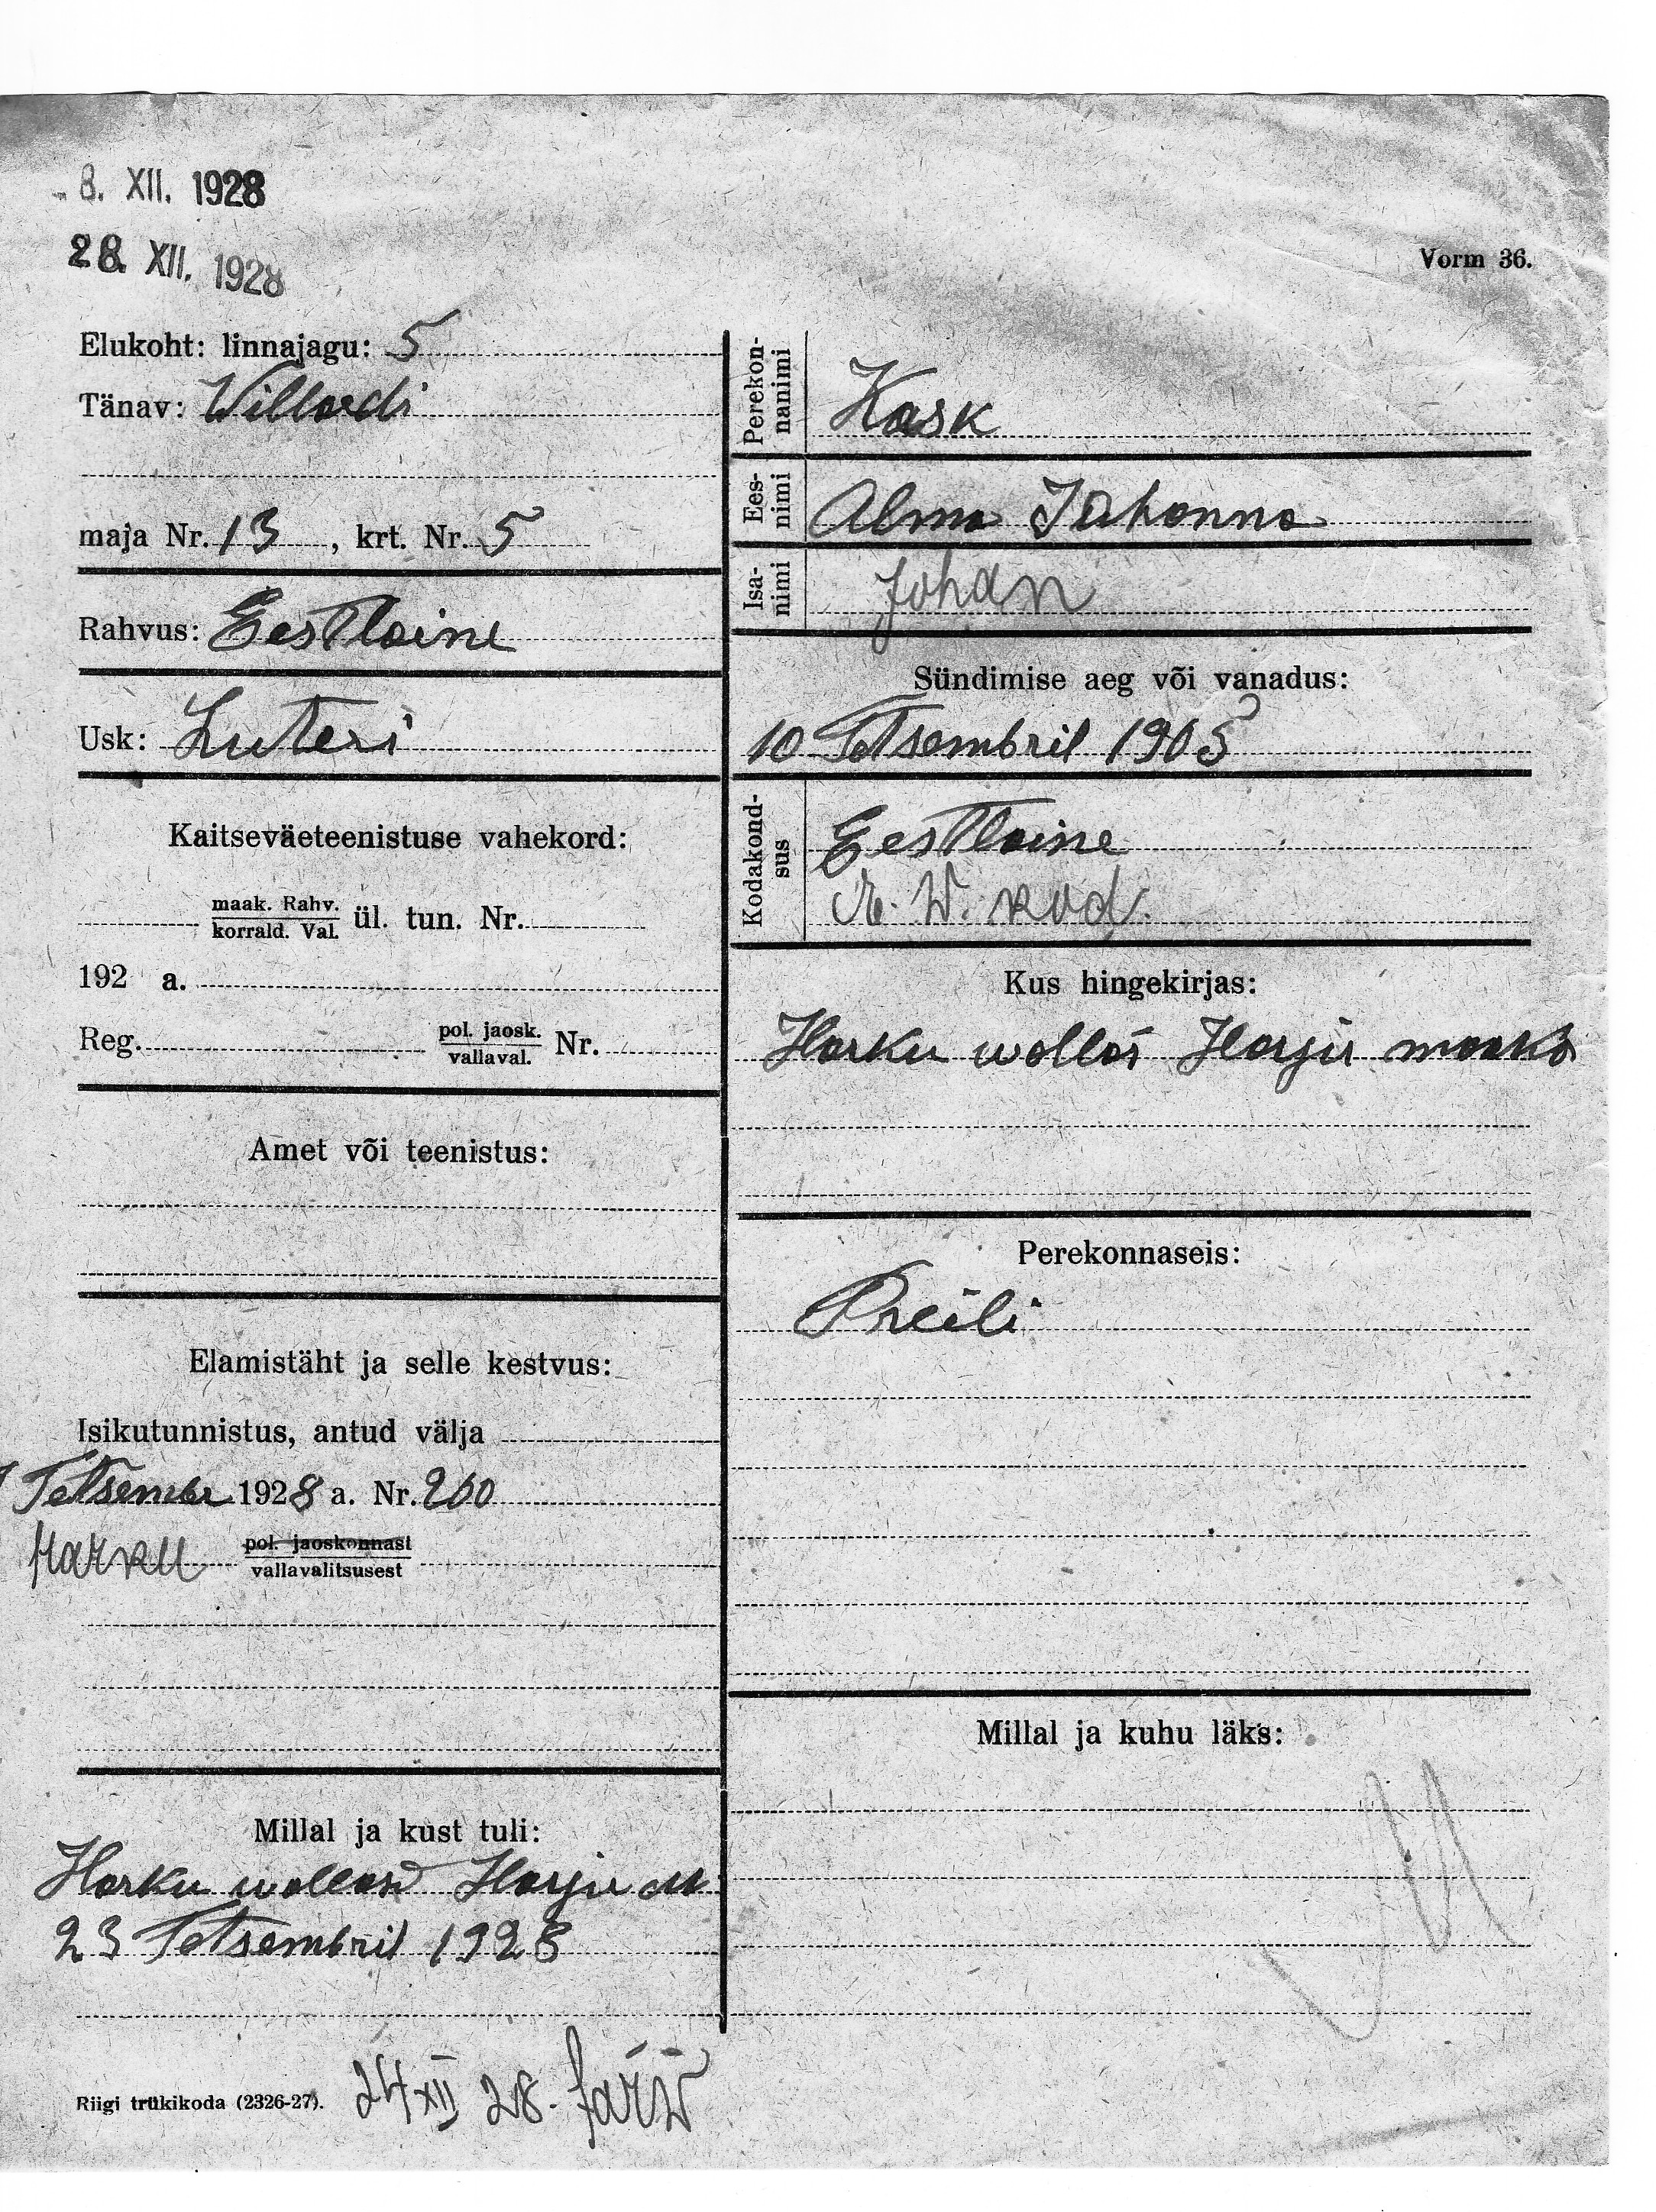 8. XII. 1928
28. XII. 1928
Vorm 36.
Elukoht: linnajagu: 5
Tänav: Willardi
maja Nr. 13, krt. Nr. 5
Rahvus: Eestlaine
Usk: Luteri
Kaitseväeteenistuse vahekord:
maak. Rahv.
korrald. Val. ül. tun. Nr.
192 a.
Reg. pol. jaosk.
vallaval. Nr.
Amet või teenistus:
Elamistäht ja selle kestvus:
Isikutunnistus, antud välja
Tetsember 1928 a. Nr. 260
Harku pol. jaoskonnast
vallavalitsusest
Millal ja kust tuli:
Harku wallast Harju M
23 Tetsembril 1928
Riigi trükikoda (2326-27). 24 XII 28.
Perekon-
nanimi
Kask
Ees-
nimi
Alma Johanna
Isa-
nimi
Johan
Sündimise aeg või vanadus:
10 Tetsembril 1905
Kodakond-
sus
Eestlaine
E. W. kod.
Kus hingekirjas:
Harku wallas Harju maak
Perekonnaseis:
Preili
Millal ja kuhu läks: